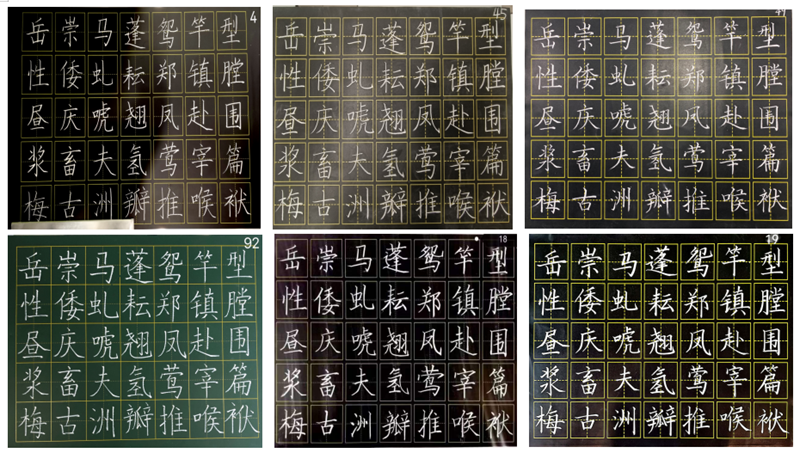 4
岳崇马蓬鸳竿型
性倭虬耘郑镇膛
昼庆唬翘凤赴围
浆畜夫氢莺宰篇
梅古洲瓣推喉袱
45
岳崇马蓬鸳竿型
性倭虬耘郑镇膛
昼庆唬翘凤赴围
浆畜夫氢莺宰篇
梅古洲瓣推喉袱
岳崇马蓬鸳竿型
性倭虬耘郑镇膛
昼庆唬翘凤赴围
浆畜夫氢莺宰篇
梅古洲瓣推喉袱
92
岳崇马蓬鸳竿型
性倭虬耘郑镇膛
昼庆唬翘凤赴围
浆畜夫氢莺宰篇
梅古洲瓣推喉袱
18
岳崇马蓬鸳竿型
性倭虬耘郑镇膛
昼庆唬翘凤赴围
浆畜夫氢莺宰篇
梅古洲瓣推喉袱
19
岳崇马蓬鸳竿型
性倭虬耘郑镇膛
昼庆唬翘凤赴围
浆畜夫氢莺宰篇
梅古洲瓣推喉袱